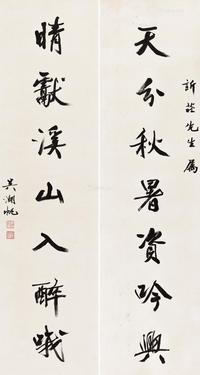 訢莊先生屬
天分秋暑資吟興
晴獻溪山入醉哦
吳湖帆